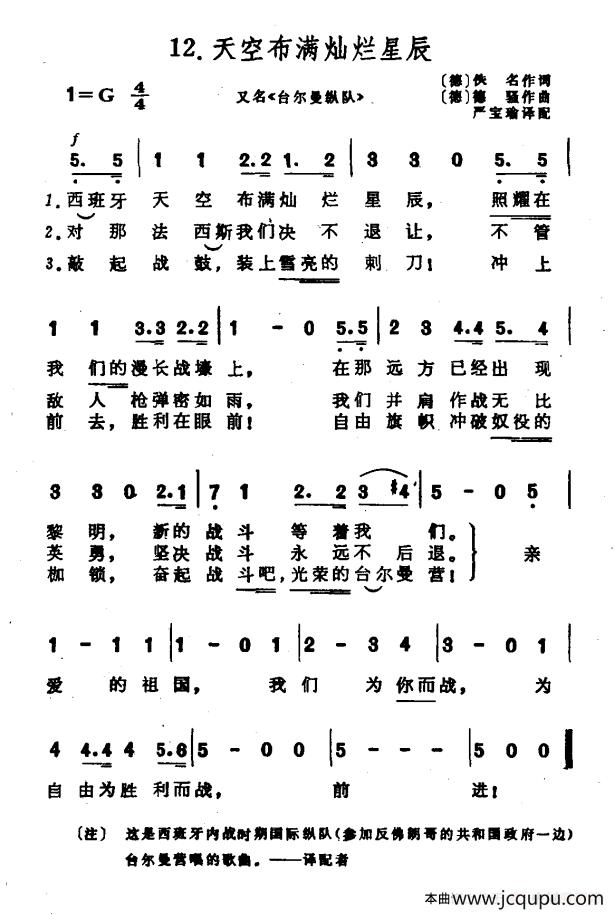 12．天空布满灿烂星辰
1＝G 4/4
又名《台尔曼纵队》
〔德〕佚 名作词
〔德〕德 骚作曲
严宝瑜译配
f
5. 5 | 1 1 2.2 1. 2 | 3 3 0 5. 5 |
1．西班牙 天 空 布满灿 烂 星 辰， 照耀在
2．对 那 法 西斯我们决 不 退 让， 不 管
3．敲 起 战 鼓，装上雪亮的 刺 刀！ 冲 上
1 1 3.3 2.2 | 1 - 0 5.5 | 2 3 4.4 5. 4 |
我 们的漫长战壕 上， 在那 远 方 已经出 现
敌 人 枪弹密如 雨， 我们 并 肩 作战无 比
前 去，胜利在眼 前！ 自由 旗 帜 冲破奴役的
3 3 0 2.1 | 7 1 2. 2 3 #4 | 5 - 0 5 |
黎 明， 新的 战 斗 等 着我 们。
英 勇， 坚决 战 斗 永 远不 后 退。 亲
枷 锁， 奋起 战 斗吧，光荣的台尔曼 营！
1 - 1 1 | 1 - 0 1 | 2 - 3 4 | 3 - 0 1 |
爱 的 祖 国， 我 们 为 你而战， 为
4 4.4 4 5.6 | 5 - 0 0 | 5 - - - | 5 0 0
自 由为胜 利而战， 前 进！
〔注〕 这是西班牙内战时期国际纵队（参加反佛朗哥的共和国政府一边）
台尔曼营唱的歌曲。——译配者
本曲
www.jcqupu.com